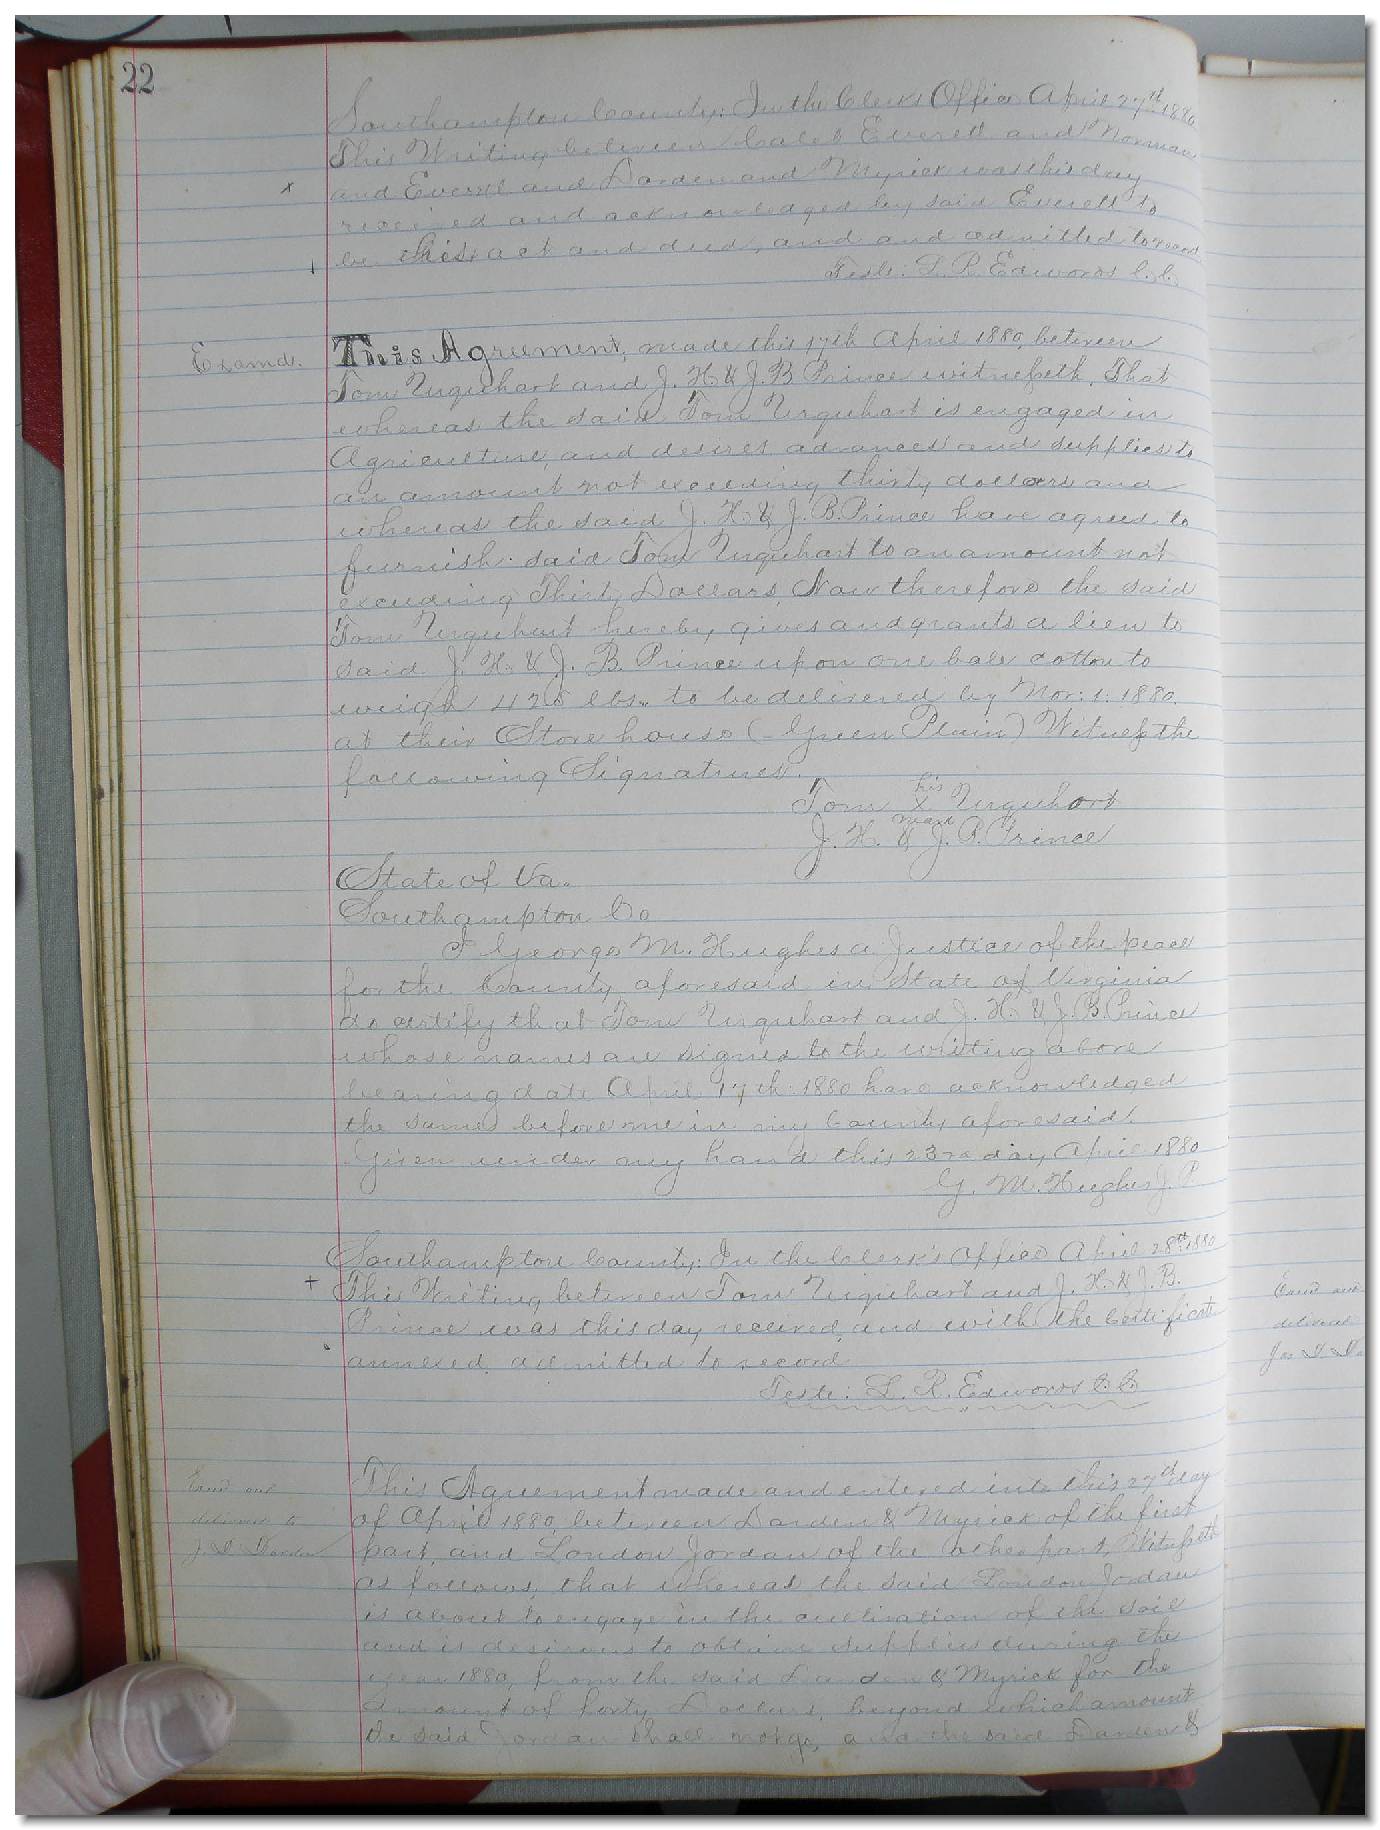 22
Southampton County: In the Clerks Office April 27th 1880
This Writing between Caleb Everett and Norman
and Everett and Darden and Myrick was this day
x
received and acknowledged by said Everett to
be this act and deed, and and admitted to record
Teste: L. R. Edwards C. C.
Examd.
This Agreement, made this 17th April 1880, between
Tom Urquhart and J. H. & J. B Prince witnesseth. That
whereas the said Tom Urquhart is engaged in
Agriculture, and desires advances and supplies to
an amount not exceeding thirty dollars and
whereas the said J. H. & J. B. Prince have agreed to
furnish said Tom Urquhart to an amount not
exceeding Thirty Dollars, Now therefore the said
Tom Urquhart hereby gives and grants a lien to
said J. H. & J. B. Prince upon one bale cotton to
weigh 425 lbs. to be delivered by Nov: 1. 1880.
at their Store house (Green Plain) Witness the
following Signatures.
his
Tom X Urquhart
mark
J. H. & J. B. Prince
State of Va.
Southampton Co
I George M. Hughes a Justice of the peace
for the County aforesaid in State of Virginia
do certify that Tom Urquhart and J. H. & J. B. Prince
whose names are signed to the writing above
bearing date April 17th 1880 have acknowledged
the same before me in my County aforesaid.
Given under my hand this 23rd day April 1880
G. M. Hughes J. P.
Southampton County: In the Clerk's Office April 28th 1880
+
This Writing between Tom Urquhart and J. H. & J. B.
Prince was this day received, and with the Certificate
annexed admitted to record
Teste: L. R. Edwards C. C.
Examd and
delivered to
J. D. Darden
This Agreement made and entered into this 27th day
of April 1880, between Darden & Myrick of the first
part, and London Jordan of the other part, Witnesseth
as follows, that whereas the said London Jordan
is about to engage in the cultivation of the soil
and is desirous to obtain supplies during the
year 1880, from the said Darden & Myrick for the
amount of forty Dollars, beyond which amount
the said Jordan shall not go, and the said Darden &
Examd and
delivered